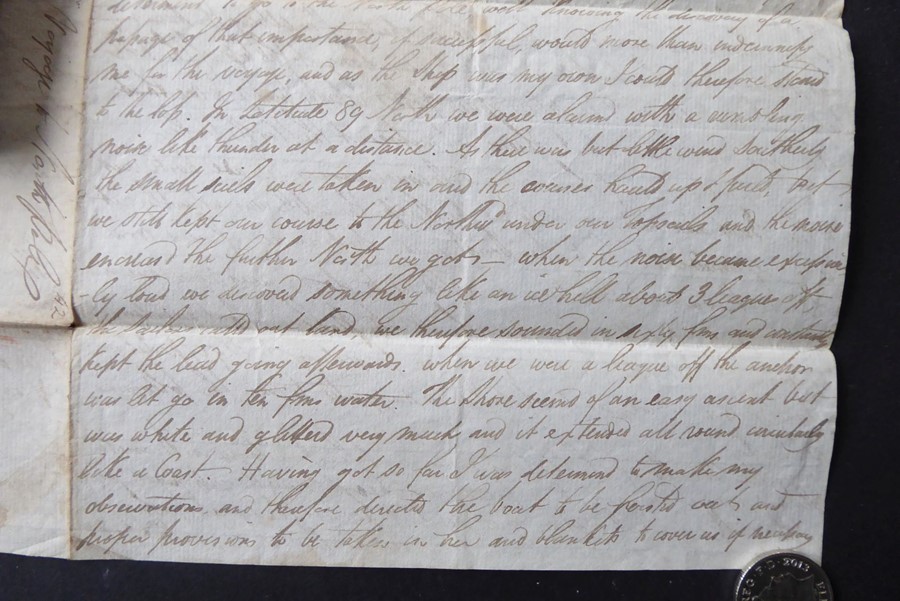 determined to go to the North Pole well knowing the discovery of a
passage of that importance, if successful, would more than indemnify
me for the voyage, and as the Ship was my own I could therefore stand
to the loss. In Latitude 89 North we were alarmd with a rumbling
noise like thunder at a distance. As there was but little wind Southerly
the small sails were taken in and the courses hauld up & furld, but
we still kept our course to the Northwd under our Topsails and the noise
encreasd the further North we got – when the noise became excessive
-ly loud we discoverd something like an ice hill about 3 leagues off,
the calld out land, we therefore sounded in sixty fms and constantly
kept the lead going afterwards. when we were a league off the anchor
was let go in ten fms water. The Shore seemd of an easy ascent but
was white and glitterd very much, and it extended all round circularly
like a Coast. Having got so far I was determind to make my
observations, and therefore directed the boat to be hoisted out and
proper provisions to be taken in her and blankets to cover us if necessary
Voyage to North Pole
2012